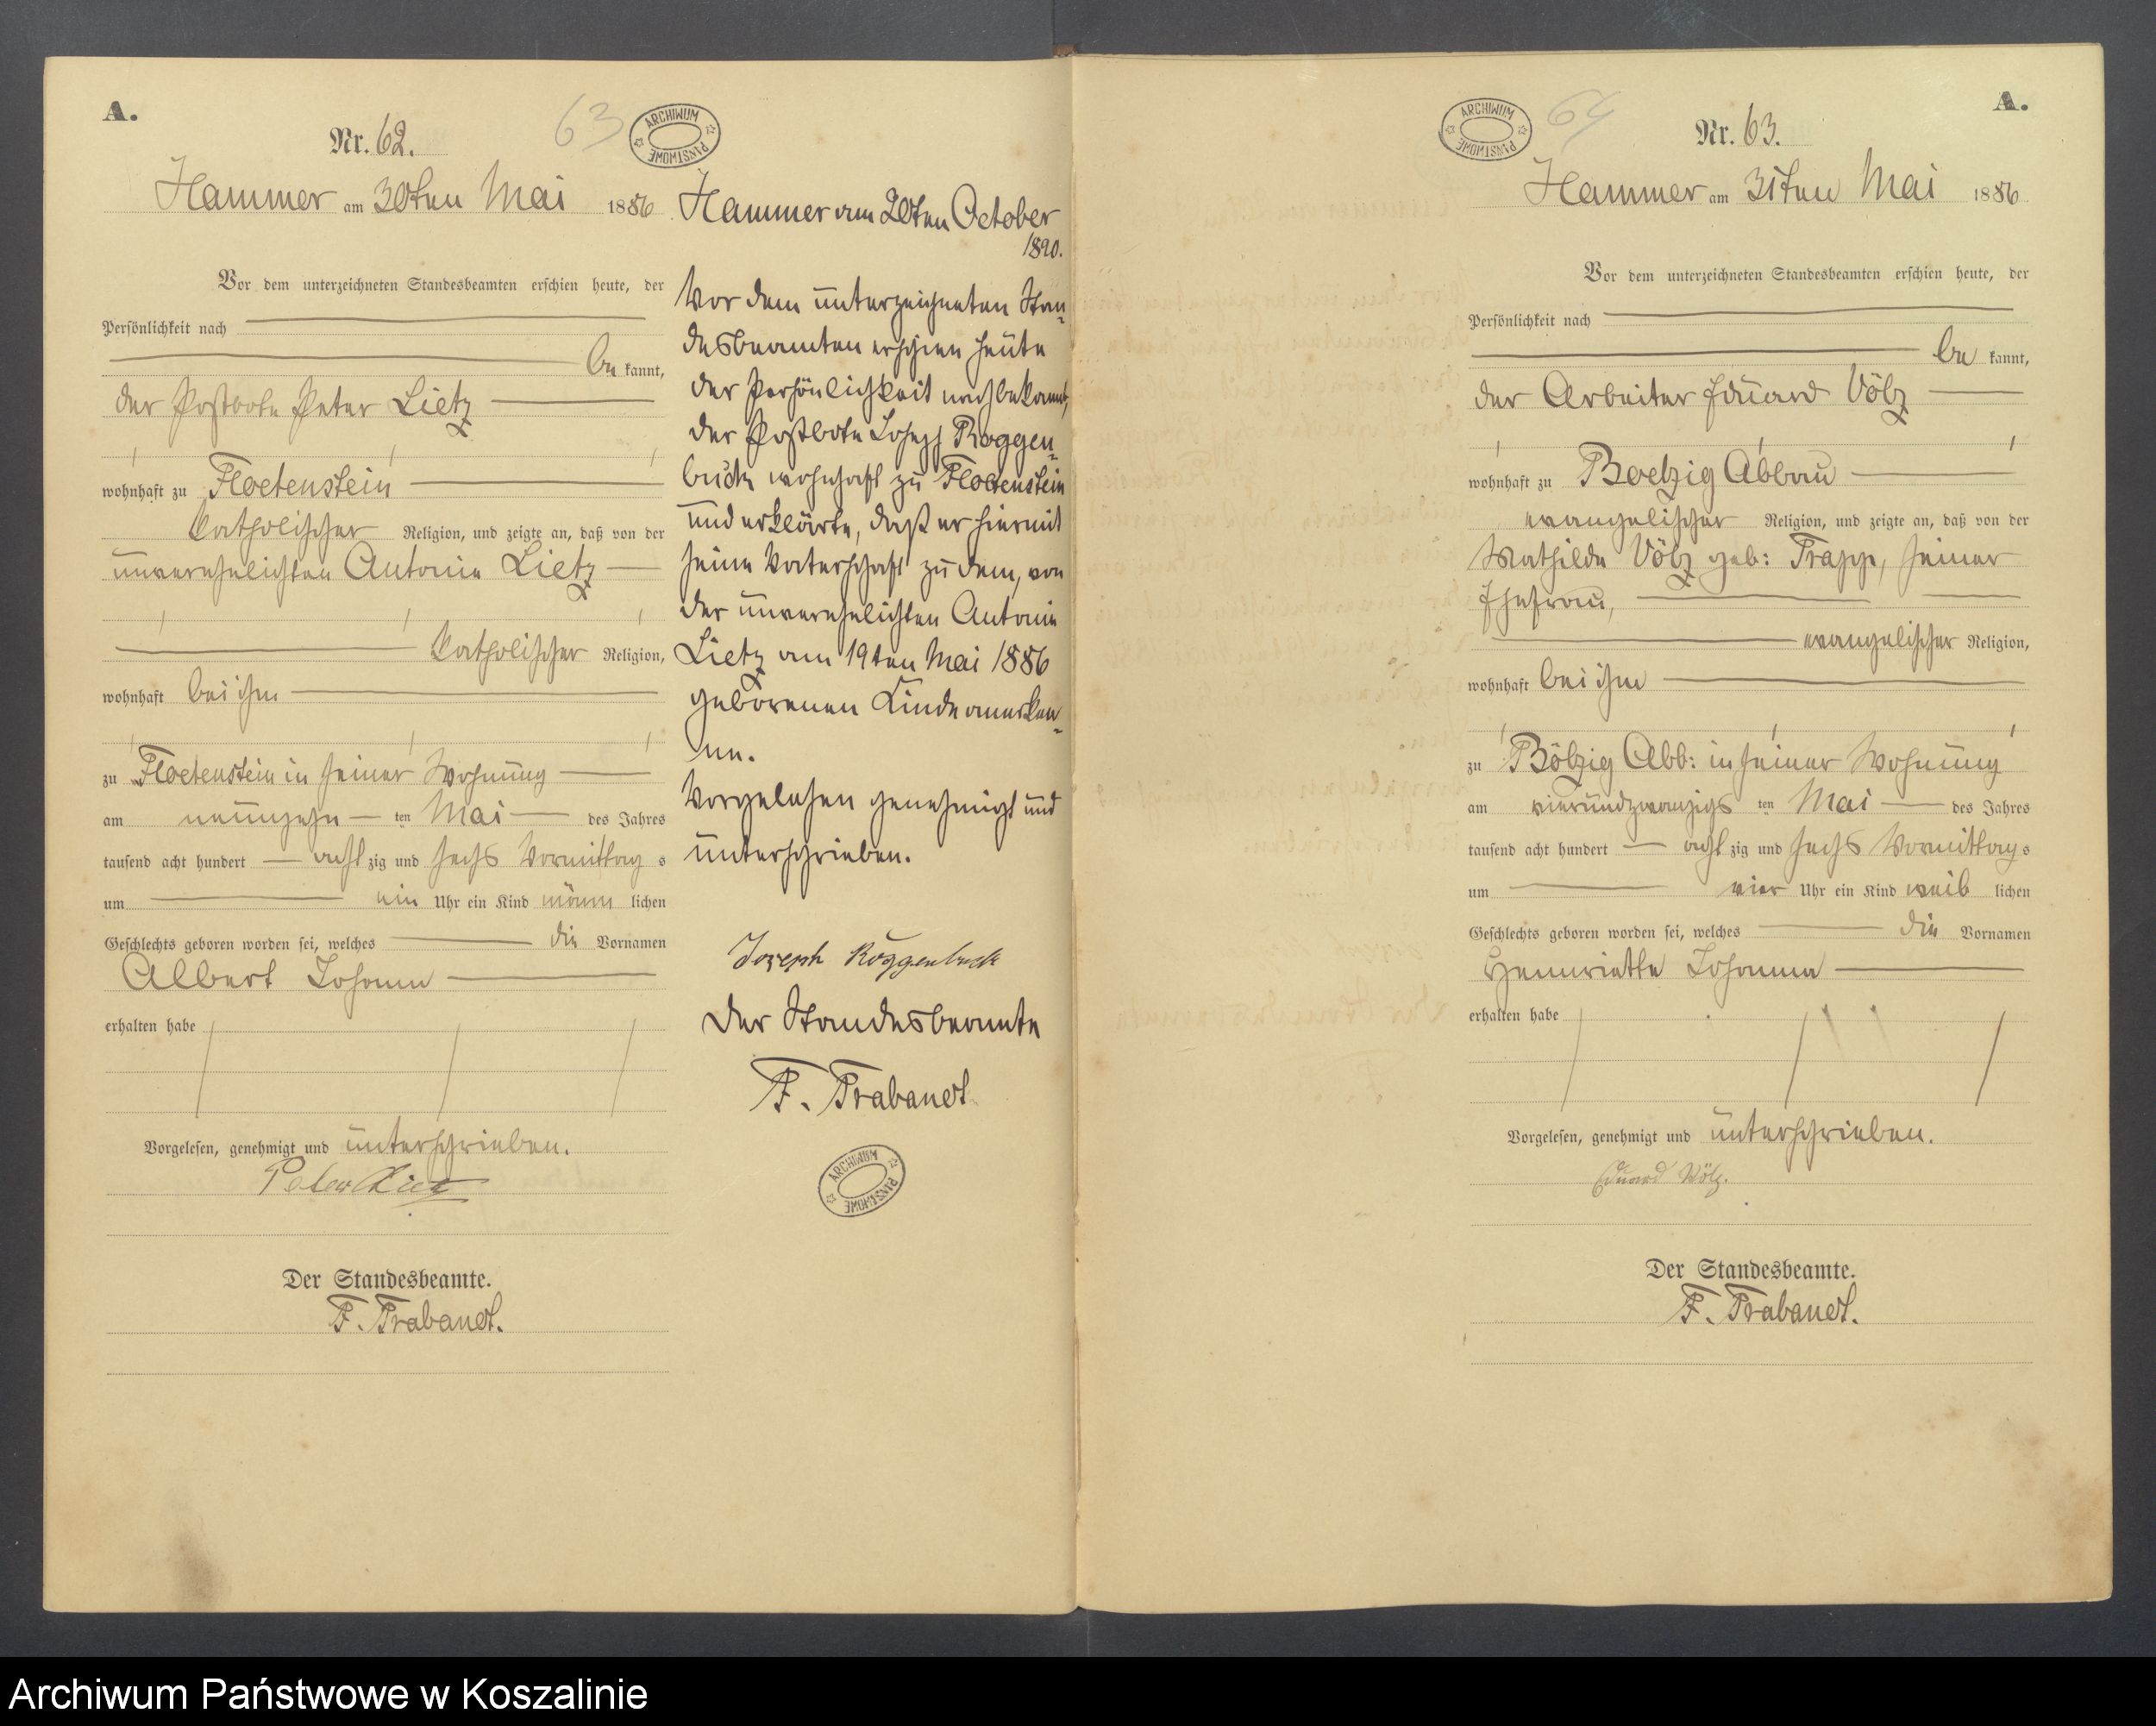 A.
Nr. 62.
63
ARCHIWUM PAŃSTWOWE
Hammer am 30ten Mai 1886
Vor dem unterzeichneten Standesbeamten erschien heute, der
Persönlichkeit nach
be kannt,
der Postbote Peter Lietz
wohnhaft zu Floetenstein
katholischer Religion, und zeigte an, daß von der
unverehelichten Antonie Lietz
katholischer Religion,
wohnhaft bei ihm
zu Floetenstein in seiner Wohnung
am neunzehn ten Mai des Jahres
tausend acht hundert acht zig und sechs Vormittag s
um ein Uhr ein Kind männ lichen
Geschlechts geboren worden sei, welches die Vornamen
Albert Johann
erhalten habe
Vorgelesen, genehmigt und unterschrieben.
Peter Lietz
Der Standesbeamte.
F. Trabandt.
Hammer am 20ten October
1890.
Vor dem unterzeichneten Stan-
desbeamten erschien heute
der Persönlichkeit nach bekannt,
der Postbote Joseph Roggen-
buck wohnhaft zu Floetenstein
und erklärte, daß er hiermit
seine Vaterschaft zu dem, von
der unverehelichten Antonie
Lietz am 19ten Mai 1886
geborenen Kinde anerken-
ne.
Vorgelesen genehmigt und
unterschrieben.
Joseph Roggenbuck
Der Standesbeamte
F. Trabandt
ARCHIWUM PAŃSTWOWE
A.
ARCHIWUM PAŃSTWOWE
64
Nr. 63.
Hammer am 31ten Mai 1886
Vor dem unterzeichneten Standesbeamten erschien heute, der
Persönlichkeit nach
be kannt,
der Arbeiter Eduard Völz
wohnhaft zu Boelzig Abbau
evangelischer Religion, und zeigte an, daß von der
Mathilde Völz geb: Trapp, seiner
Ehefrau,
evangelischer Religion,
wohnhaft bei ihm
zu Bölzig Abb: in seiner Wohnung
am vierundzwanzigs ten Mai des Jahres
tausend acht hundert acht zig und sechs Vormittag s
um vier Uhr ein Kind weib lichen
Geschlechts geboren worden sei, welches die Vornamen
Henriette Johanna
erhalten habe
Vorgelesen, genehmigt und unterschrieben.
Eduard Völz.
Der Standesbeamte.
F. Trabandt.
Archiwum Państwowe w Koszalinie